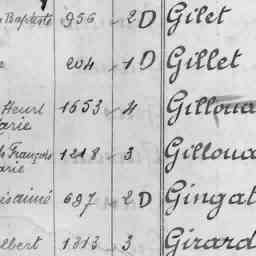 Baptiste 956 2D Gilet
204 1D Gillet
Henri 1653 4 Gilloua
arie
François 1218 3 Gilloua
arie
aimé 687 2D Gingat
lbert 1313 3 Girard